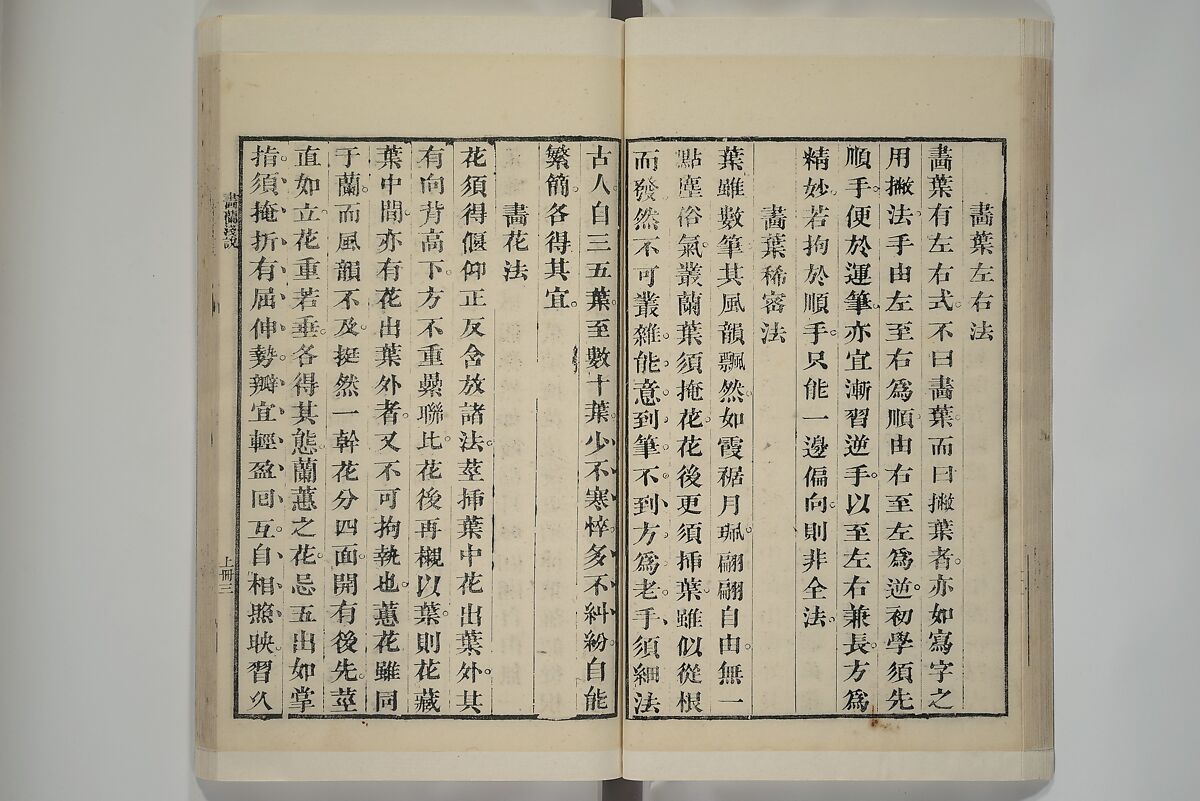 畫葉左右法
畫葉有左右式。不曰畫葉而曰撇葉者。亦如寫字之
用撇法。手由左至右爲順。由右至左爲逆。初學須先
順手。便於運筆。亦宜漸習逆手。以至左右兼長。方爲
精妙。若拘於順手。只能一邊偏向。則非全法。
畫葉稀密法
葉雖數筆。其風韻飄然。如霞裾月珮。翩翩自由。無一
點塵俗氣。叢蘭葉須掩花。花後更須揷葉。雖似從根
而發。然不可叢雜。能意到筆不到。方爲老手。須細法
古人。自三五葉至數十葉。少不寒悴。多不糾紛。自能
繁簡各得其宜。
畫花法
花須得偃仰正反含放諸法。莖揷葉中。花出葉外。其
有向背高下。方不重疊聯比。花後再襯以葉。則花藏
葉中。間亦有花出葉外者。又不可拘執也。蕙花雖同
于蘭。而風韻不及。挺然一幹。花分四面。開有後先。莖
直如立。花重若垂。各得其態。蘭蕙之花。忌五出如掌
指。須掩折有屈伸勢。瓣宜輕盈囘互。自相照映。習久
畫蘭淺說
上冊三